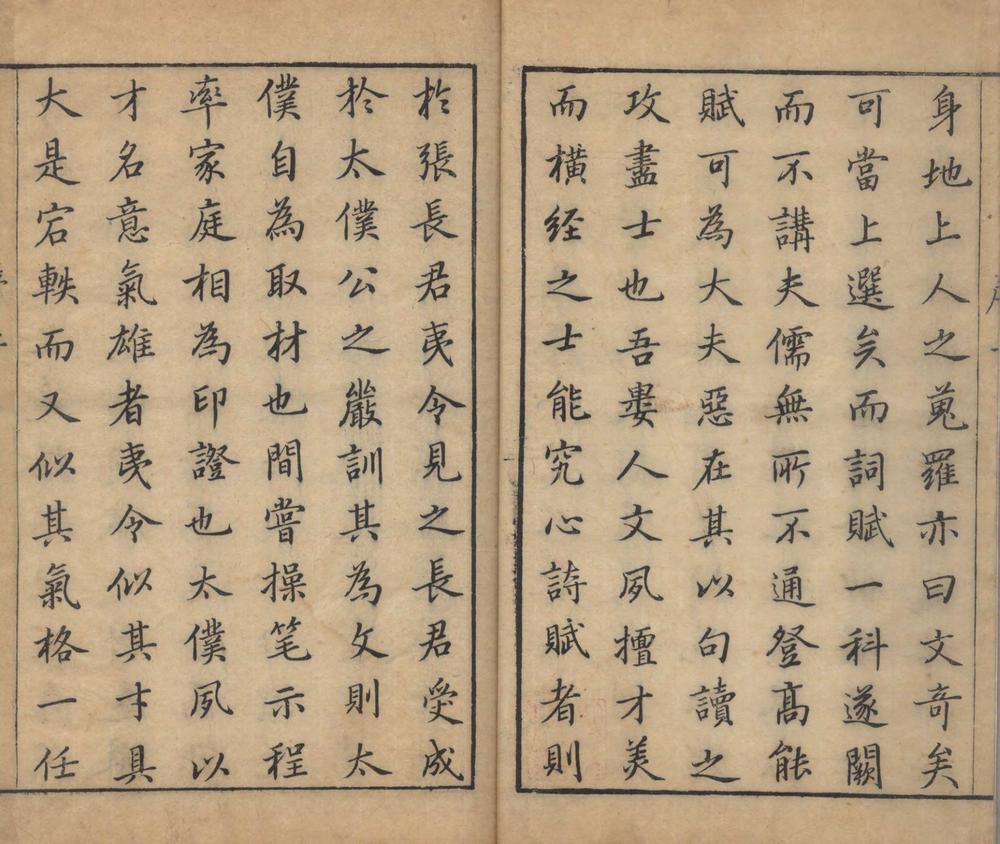 身地上人之蒐羅亦曰文奇矣
可當上選矣而詞賦一科遂闕
而不講夫儒無所不通登髙能
賦可為大夫惡在其以句讀之
攻盡士也吾婁人文夙擅才美
而橫经之士能究心詩賦者則
扵張長君夷令見之長君受成
扵太僕公之嚴訓其為文則太
僕自為取材也間嘗操笔示程
率家庭相為印證也太僕夙以
才名意氣雄者夷令似其才具
大是宕軼而又似其氣格一任